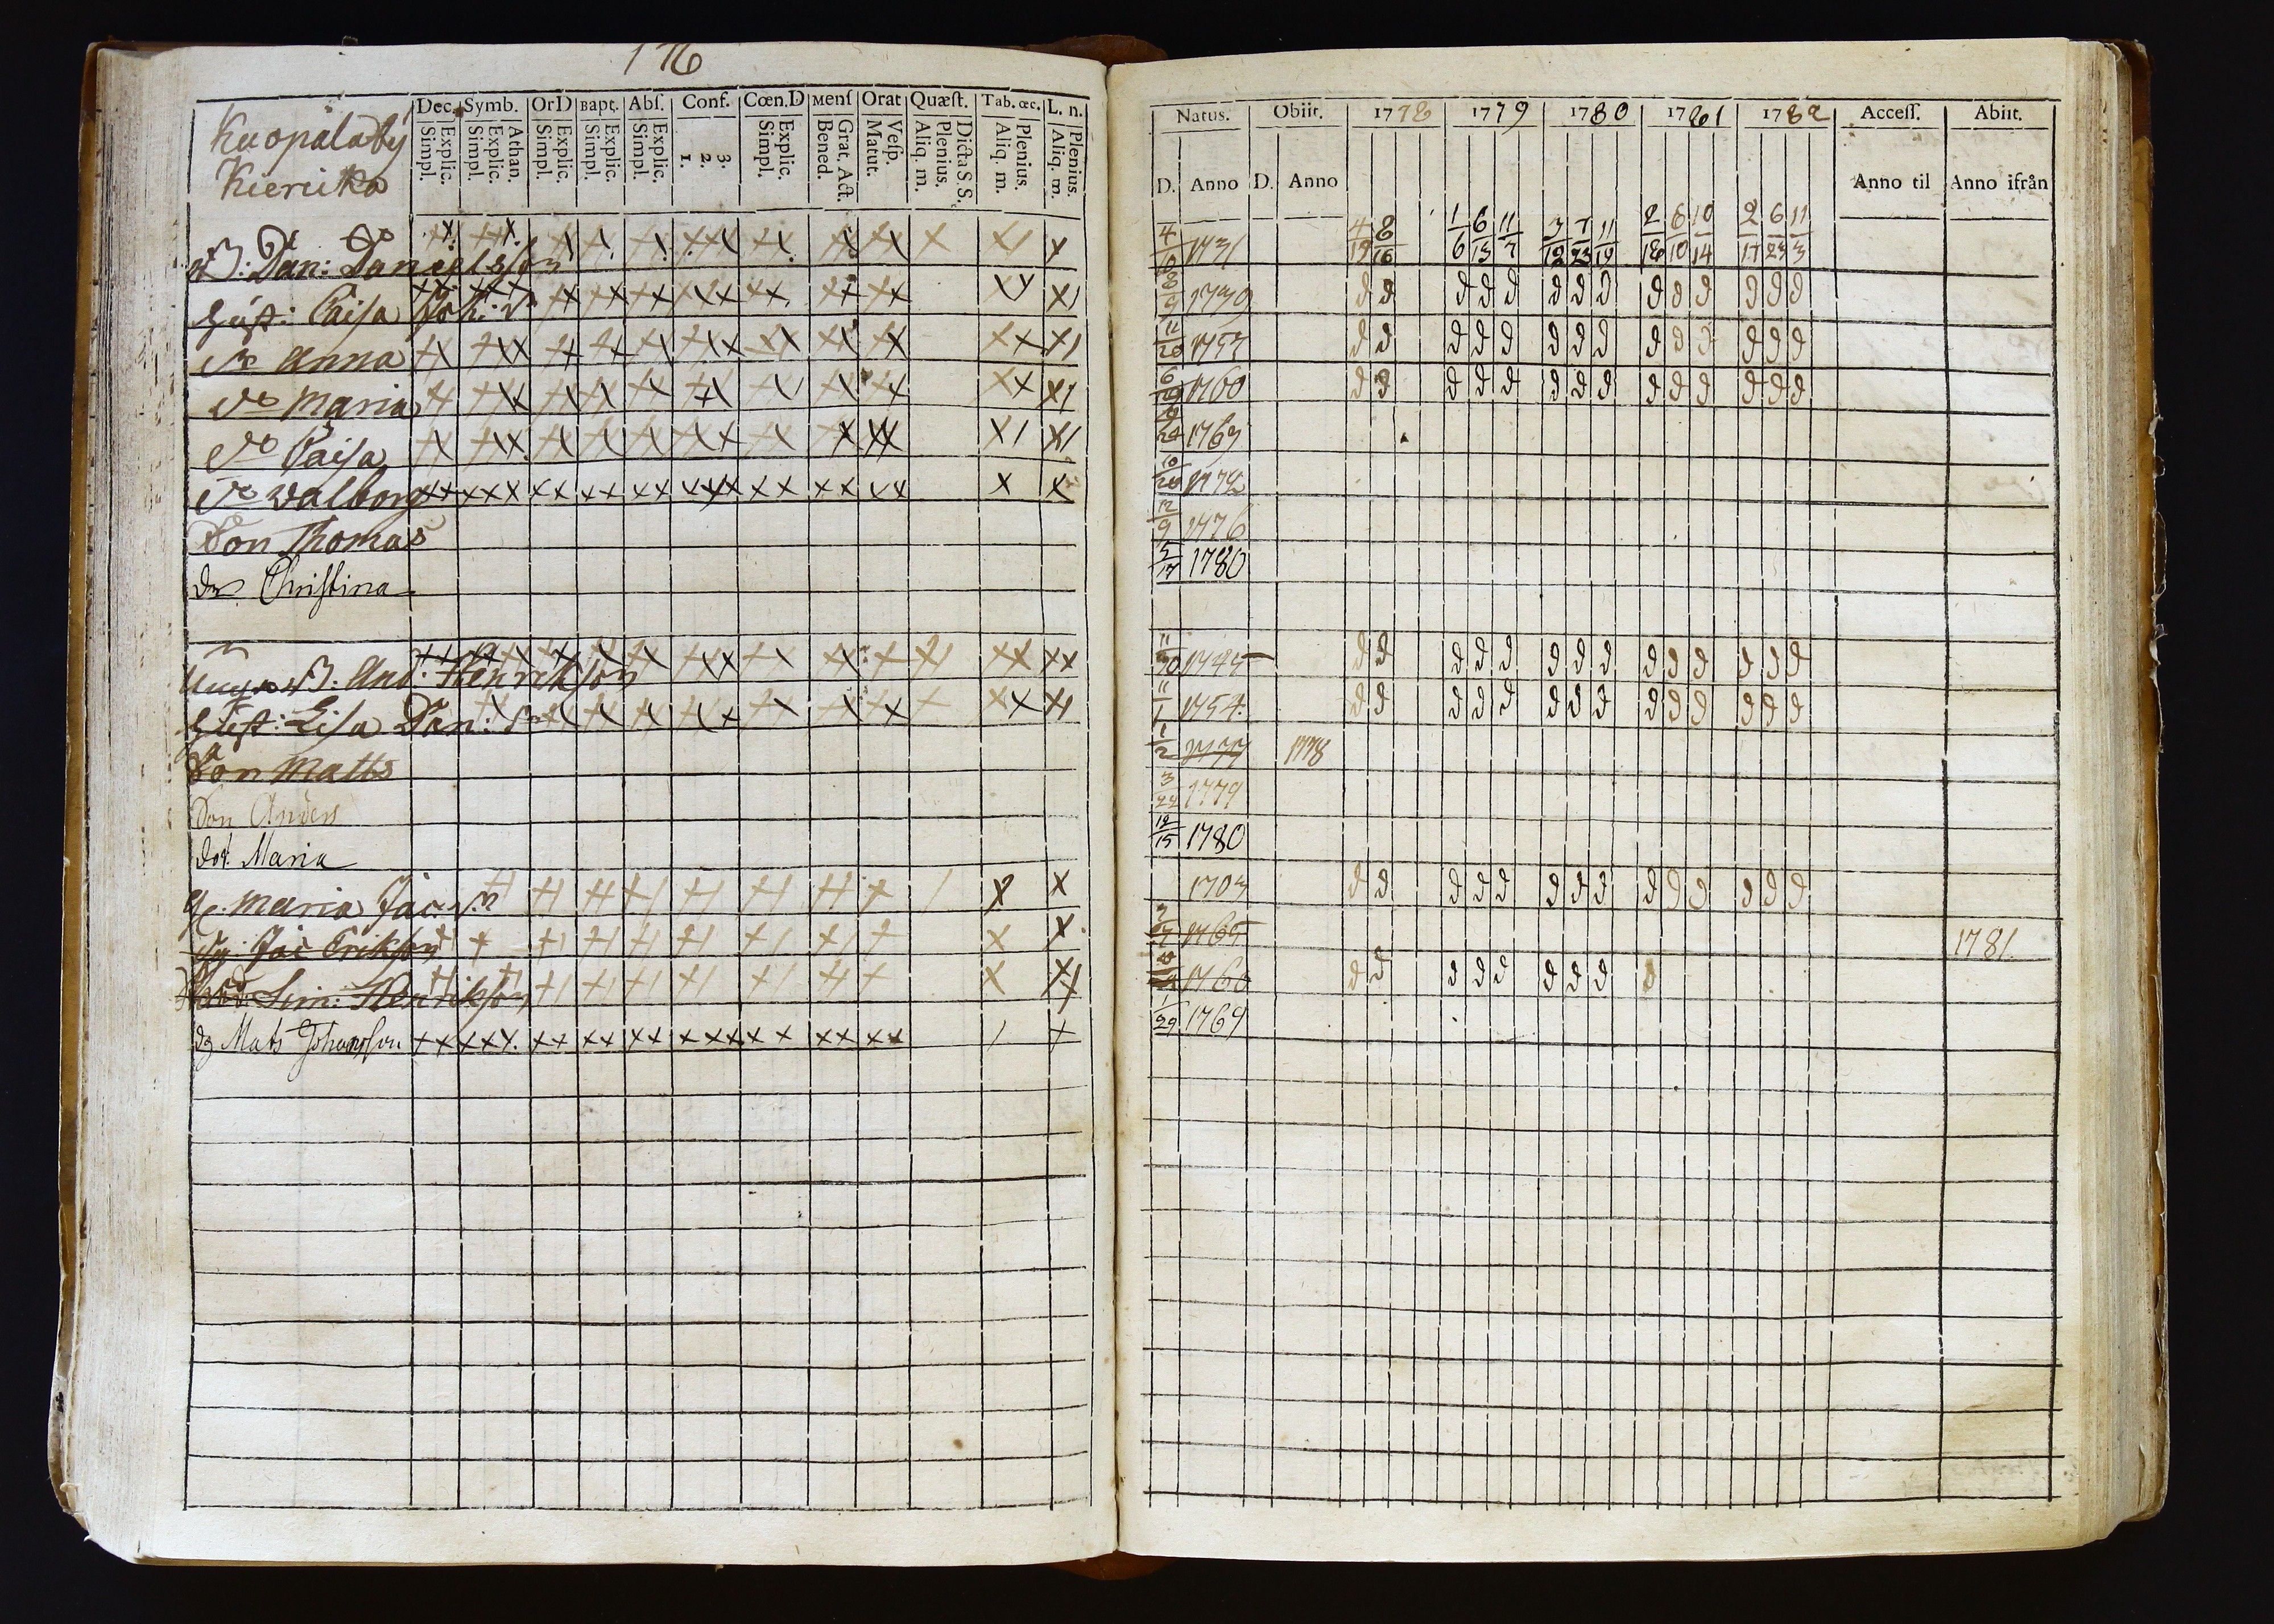 176
Dec. Symb. OrD Bapt. Abſ. Conf. Cœn.D Menſ Orat Quæſt. Tab. œc. L. n.
Kuopalaby
Kierikka
Explic. Simpl. Athan. Explic. Simpl. Explic. Simpl. Explic. Simpl. Explic. Simpl. 3. 2. 1. Explic. Simpl. Grat. Act. Bened. Veſp. Matut. Dicta S. S. Plenius. Aliq. m. Plenius. Aliq. m. Plenius. Aliq. m.
B: Dan: Danielsson
Hust: Caisa Joh: dr
dr Anna
do Maria
do Caisa
do Walborg
Son Thomas
dr Christina
B: And: Henrikson
Hust: Lisa Dan: dr
Son Matts
Son Anders
dot Maria
Maria Jac: dr
dg: Jac Erikson
Sim: Henrikson
dg Mats Johansson
Natus. Obiit. 1778 1779 1780 1781 1782 Acceſſ. Abiit.
D. Anno D. Anno Anno til Anno ifrån
4/10 1731 4/19 8/16 1/6 6/13 11/7 3/12 7/23 11/19 2/18 6/10 10/14 2/17 6/23 11/3
8/9 1730 d d d d d d d d d d d d d d
11/20 1757 d d d d d d d d d d d d d d
1760 d d d d d d d d d d d d d d
1763
10/20 1772
12/9 1776
5/17 1780
1745 d d d d d d d d d d d d d d
11/1 1754. d d d d d d d d d d d d d d
1/2 1777 1778
3/22 1779
12/15 1780
1703 d d d d d d d d d d d d d d
1765 1781
1760 d d d d d d d d d
1/29 1769